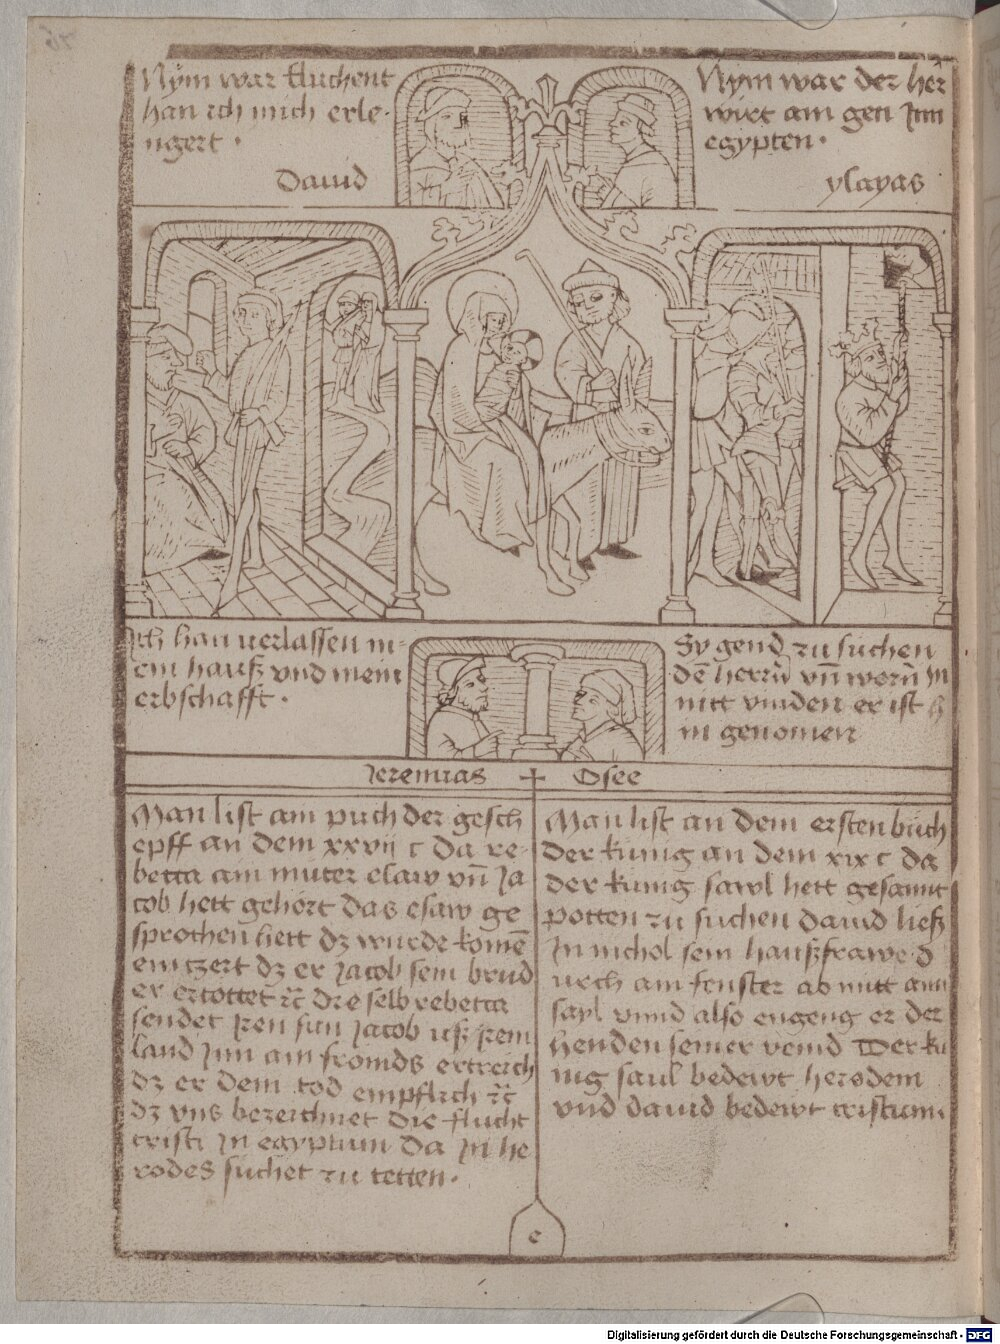 Nym war fluchent
han ich mich erle-
ngert ·
Dauid
Nym war der her
wirt am gen Jnn
egypten ·
ylayas
Ich han verlassen m-
ein hauß vnd mein
erbschafft ·
Sy gend zu suchen
dē herrn̄ vn̄ wern̄ Jn
nitt vinden er ist h
in genomen
Jeremias + Osee
Man list am puch der gesch
epff an dem xxvij c da re-
betta ain muter esaw vn̄ Ja
cob hett gehört das esaw ge
sprochen hett dz wurde komē
ein tzeit dz er Jacob sein brud
er ertöttet ꝛc die selb rebetta
sendet Jren sun Jacob uß Jrem
land Jnn ain frömds ertreich
dz er dem tod empflich ꝛc
dz vns bezeichnet die flucht
cristi Jn egyptum da Jn he
rodes suchet zu tetten ·
Man list an dem ersten büch
der kunig an dem xix c da
der kunig sawl hett gesannt
potten zu suchen dauid ließ
Jn michol sein haußfrawe d
urch ain fenster ab mitt aim
sayl vnnd also engeng er der
henden seiner veind Der ku
nig saul bedewt herodem
vnd dauid bedewt cristum
e
Digitalisierung gefördert durch die Deutsche Forschungsgemeinschaft - DFG